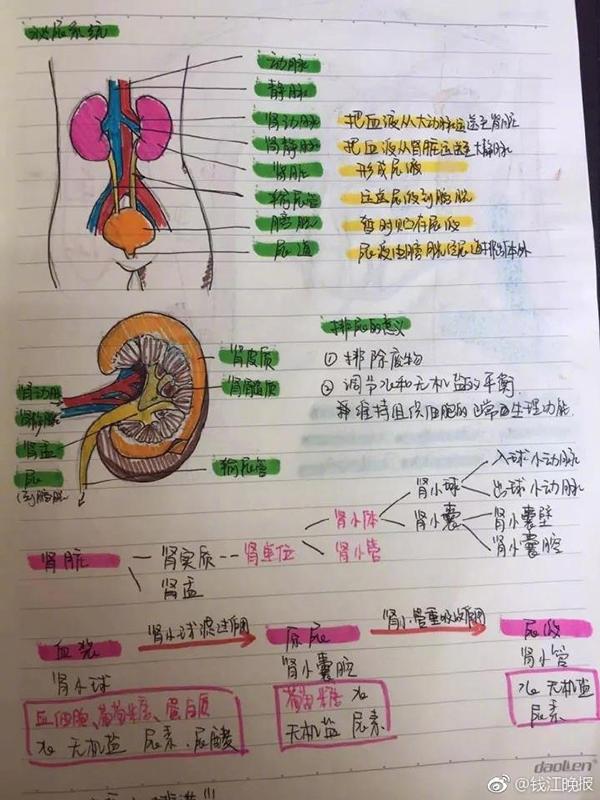 泌尿系统
动脉
静脉
肾动脉 把血液从大动脉运送至肾脏
肾静脉 把血液从肾脏运送至大静脉
肾脏 形成尿液
输尿管 运送尿液到膀胱
膀胱 暂时贮存尿液
尿道 尿液由膀胱经尿道排出体外
肾皮质
肾髓质
肾动脉
肾静脉
肾盂
尿
(到膀胱)
输尿管
排尿的意义
① 排除废物
② 调节水和无机盐的平衡
维持组织细胞的正常生理功能.
肾脏
肾实质
肾盂
肾单位
肾小体
肾小管
肾小球
肾小囊
入球小动脉
出球小动脉
肾小囊壁
肾小囊腔
血浆 肾小球滤过作用 原尿 肾小管重吸收作用 尿液
肾小球 肾小囊腔 肾小管
血细胞、葡萄糖、蛋白质 葡萄糖 水 水 无机盐
水 无机盐 尿素、尿酸 无机盐 尿素 尿素
daolien
@钱江晚报